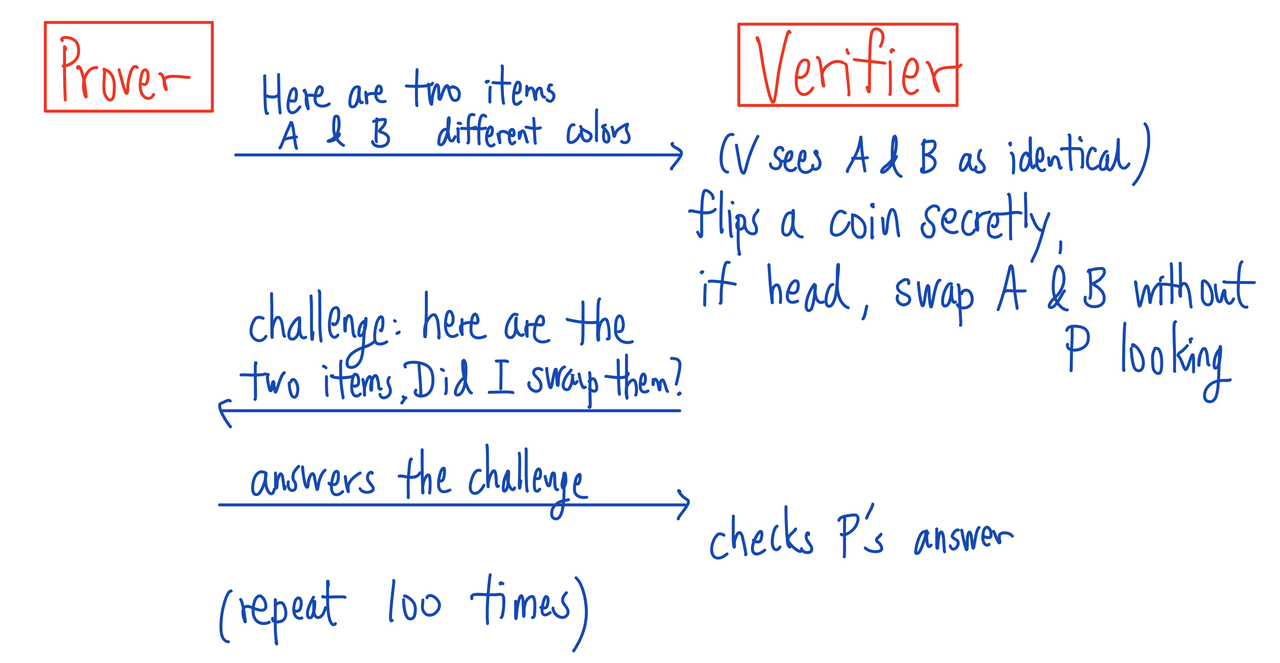 Prover
Verifier
Here are two items
A & B different colors
(V sees A & B as identical)
flips a coin secretly,
if head, swap A & B without
P looking
challenge: here are the
two items, Did I swap them?
answers the challenge
checks P's answer
(repeat 100 times)